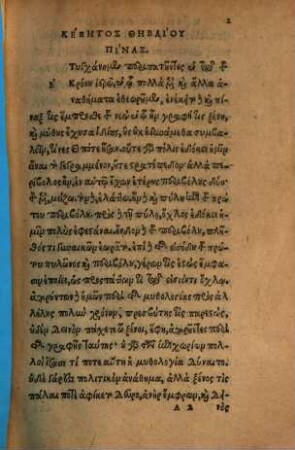 2
ΚΕΒΗΤΟΣ ΘΗΒΑΙΟΥ
ΠΙΝΑΞ.
Τυγχάνομεν περιπατοῦντες ἐν τῷ τοῦ
Κρόνου ἱερῷ, ἐν ᾧ πολλὰ μὲν καὶ ἄλλα ἀ
ναθήματα ἐθεωροῦμεν, ἀνέκειτο δὲ καὶ πί
ναξ τις ἔμπροσθεν τοῦ νεὼ ἐν ᾧ ἦν γραφή τις ξένη,
καὶ μύθους ἔχουσα ἰδίους, οὓς οὐκ ἐδυνάμεθα συμβα
λεῖν, τίνες καὶ ποτε ἦσαν. οὔτε γὰρ πόλις ἐδόκει ἡμῖν
εἶναι τὸ γεγραμμένον, οὔτε στρατόπεδον, ἀλλὰ πε
ρίβολος ἦν, ἐν αὑτῷ ἔχων ἑτέρους περιβόλους δύο,
τὸν μὲν, μείζω, τὸν δὲ, ἐλάττω. ἦν δὲ καὶ πύλη ἐπὶ τοῦ πρώ
του περιβόλου. πρὸς δὲ τῇ πύλῃ, ὄχλος ἐδόκει ἡ
μῖν πολὺς ἐφεστάναι. ἔνδον δὲ ἐν τῷ περιβόλῳ, πλῆ
θός τι γυναικῶν ἑωρᾶτο. ἐπὶ δὲ τῆς εἰσόδου τοῦ πρώ
του πυλῶνος καὶ περιβόλου, γέρων τις ἑστὼς ἔμφα
σιν ἐποίει, ὡς προστάττων τι τῷ εἰσιόντι ὄχλῳ.
ἀπορούντων οὖν ἡμῶν περὶ τῆς μυθολογίας πρὸς ἀλ
λήλους πολὺν χρόνον, πρεσβύτης τις παρεστώς,
οὐδὲν δεινὸν πάσχετε ὦ ξένοι, ἔφη, ἀποροῦντες περὶ
τῆς γραφῆς ταύτης. οὐδὲ γὰρ τῶν ἐπιχωρίων πολ
λοὶ οἴδασι τί ποτε αὕτη ἡ μυθολογία δύναται.
οὐδὲ γάρ ἐστι πολιτικὸν ἀνάθημα, ἀλλὰ ξένος τις
πάλαι ποτὲ ἀφίκετο δεῦρο, ἀνὴρ ἔμφρων, καὶ δει
A 2 νὸς